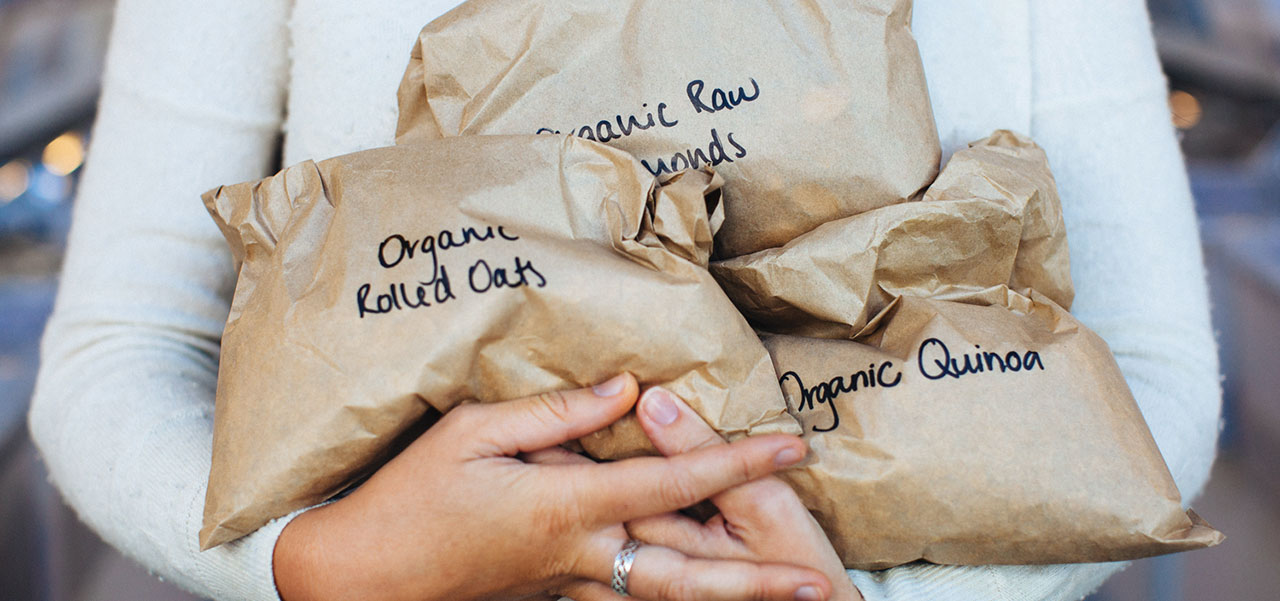 Organic Raw
Almonds
Organic
Rolled Oats
Organic Quinoa